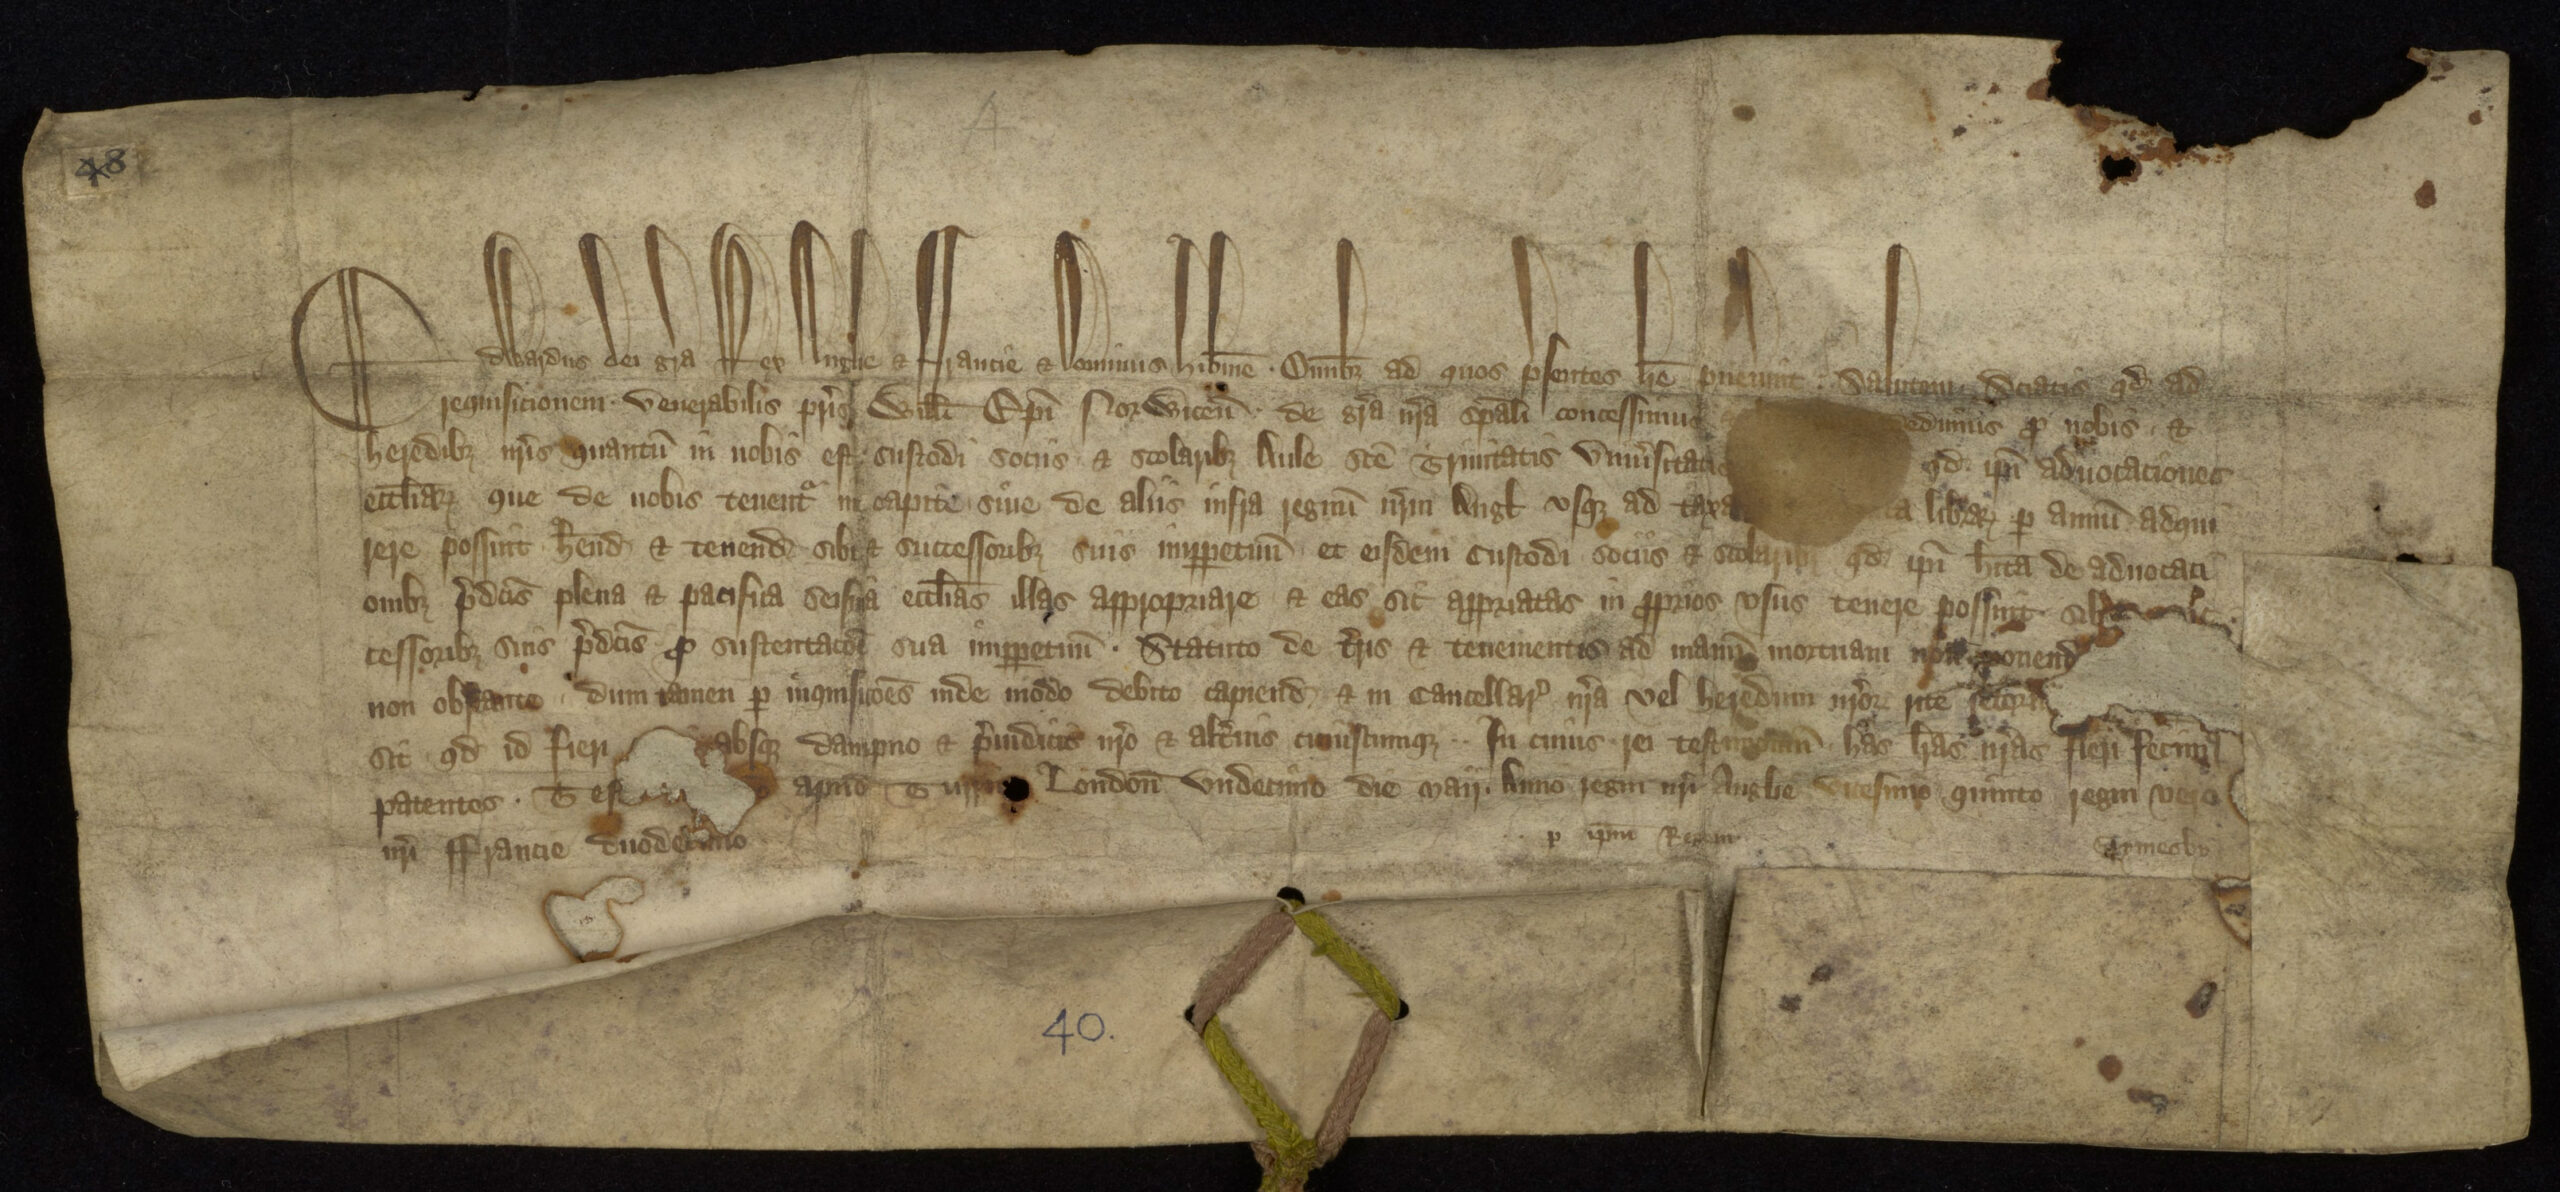 48
A
Edwardus dei gra Rex Anglie & Francie & Dominus Hibnie. Omibȝ ad quos psentes lre pvenint. Saltutem. Sciatis qd ad
requisicionem venerabilis pris Willi Epi Norwicen de gra nra spali concessimus dedimus p nobis &
heredibȝ nris quantu in nobis est custodi sociis & scolaribȝ Aule sce Trinitatis Univsitatis qd ipi advocationes
eccliarȝ que de nobis tenent in capite sive de aliis infra regnu nrm Angl usqȝ ad librarȝ p annu adqui
rere possint hend & tenend sibi & successoribȝ suis imppetuu et eisdem Custodi sociis & scolaribȝ qd ipi hita de advocati
onibȝ pdcis plena & pacifica seisina ecclias illas appropriare & eas sic appriatas in pprios usus tenere possint sibi
cessoribȝ suis pdcis p sustentacoe sua imppetuu. Statuto de tris & tenementis ad manu mortuam non ponend
non obstante dum tamen p inquisicoes inde modo debito capiend & in Cancellar nra vel heredum nrorȝ rite retorn
sit qd id fieri absqȝ dampno & piudicio nro & altius cuiuscumqȝ. In cuius rei testimoniu has lras nras fieri fecim
patentes. Test apud Turrim London undecimo die Maii Anno regni nri Anglie vicesimo quinto regni vero
nri Francie duodecimo
p ipm Regem
40.